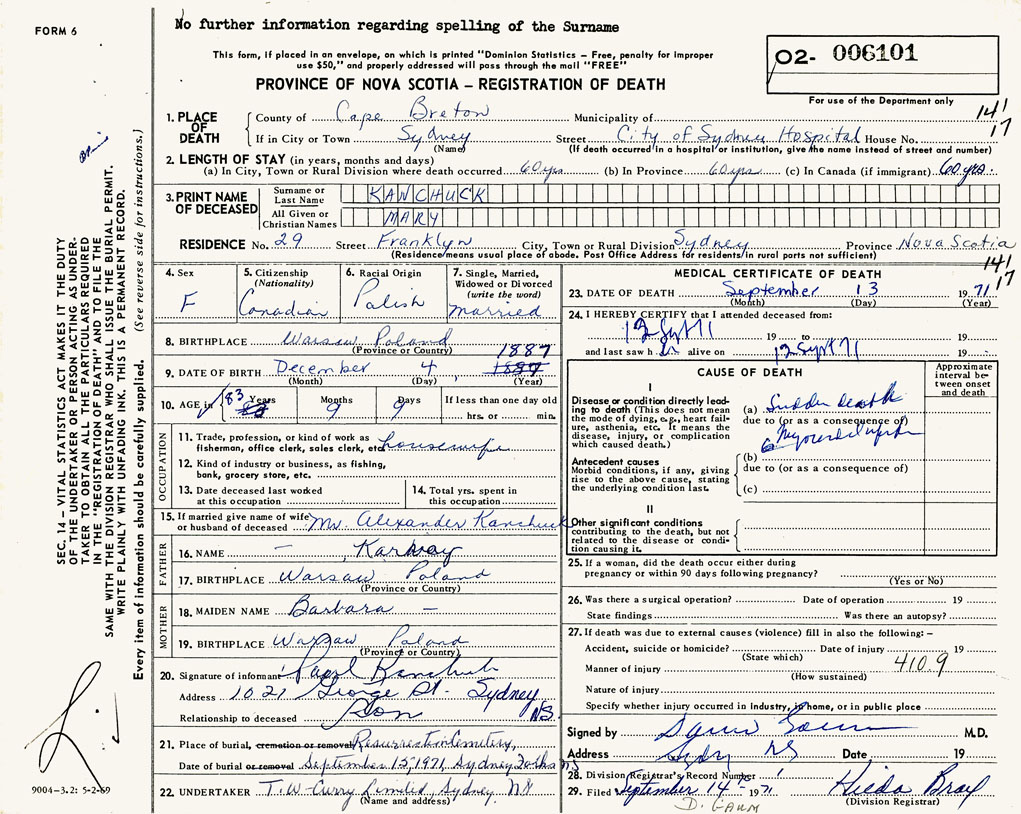 FORM 6
No further information regarding spelling of the Surname
This form, if placed in an envelope, on which is printed "Dominion Statistics – Free, penalty for improper
use $50," and properly addressed will pass through the mail "FREE"
PROVINCE OF NOVA SCOTIA – REGISTRATION OF DEATH
02- 006101
For use of the Department only
SEC. 14 – VITAL STATISTICS ACT MAKES IT THE DUTY
OF THE UNDERTAKER OR PERSON ACTING AS UNDER-
TAKER TO OBTAIN ALL THE PARTICULARS REQUIRED
IN THE "REGISTRATION OF DEATH" AND TO FILE THE
SAME WITH THE DIVISION REGISTRAR WHO SHALL ISSUE THE BURIAL PERMIT.
WRITE PLAINLY WITH UNFADING INK. THIS IS A PERMANENT RECORD.
Every item of information should be carefully supplied. (See reverse side for instructions.)
1. PLACE OF DEATH
County of Cape Breton Municipality of 141
If in City or Town Sydney Street City of Sydney Hospital House No. 17
(Name) (If death occurred in a hospital or institution, give the name instead of street and number)
2. LENGTH OF STAY (in years, months and days)
(a) In City, Town or Rural Division where death occurred 60 yrs (b) In Province 60 yrs (c) In Canada (if immigrant) 60 yrs.
3. PRINT NAME OF DECEASED
Surname or Last Name KANCHUCK
All Given or Christian Names MARY
RESIDENCE No. 29 Street Franklyn City, Town or Rural Division Sydney Province Nova Scotia
(Residence means usual place of abode. Post Office Address for residents in rural parts not sufficient)
141
17
4. Sex F
5. Citizenship (Nationality) Canadian
6. Racial Origin Polish
7. Single, Married, Widowed or Divorced (write the word) married
8. BIRTHPLACE Warsaw Poland
(Province or Country)
1887
9. DATE OF BIRTH December 4, 1887
(Month) (Day) (Year)
10. AGE in 83 Years Months 9 Days 9 If less than one day old
hrs. or min.
OCCUPATION
11. Trade, profession, or kind of work as
fisherman, office clerk, sales clerk, etc. housewife
12. Kind of industry or business, as fishing,
bank, grocery store, etc.
13. Date deceased last worked
at this occupation
14. Total yrs. spent in
this occupation
15. If married give name of wife
or husband of deceased Mr. Alexander Kanchuck
FATHER
16. NAME – Karway
17. BIRTHPLACE Warsaw Poland
(Province or Country)
MOTHER
18. MAIDEN NAME Barbara –
19. BIRTHPLACE Warsaw Poland
(Province or Country)
20. Signature of informant Paul Kanchuk
Address 1021 George St. Sydney
Relationship to deceased Son N.S.
21. Place of burial, cremation or removal Resurrection Cemetery,
Date of burial or removal September 15, 1971, Sydney Forks NS
22. UNDERTAKER T.W. Curry Limited, Sydney NS
(Name and address)
9004-3.2: 5-2-69
MEDICAL CERTIFICATE OF DEATH
23. DATE OF DEATH September 13 1971
(Month) (Day) (Year)
24. I HEREBY CERTIFY that I attended deceased from:
12 Sept 71 19 to 19
and last saw h alive on 12 Sept 71 19
CAUSE OF DEATH
Approximate interval between onset and death
I
Disease or condition directly leading to death (This does not mean the mode of dying, e.g., heart failure, asthenia, etc. It means the disease, injury, or complication which caused death.)
(a) Sudden death
due to (or as a consequence of)
Antecedent causes
Morbid conditions, if any, giving rise to the above cause, stating the underlying condition last.
(b)
due to (or as a consequence of)
(c)
II
Other significant conditions
contributing to the death, but not related to the disease or condition causing it.
25. If a woman, did the death occur either during
pregnancy or within 90 days following pregnancy?
(Yes or No)
26. Was there a surgical operation? Date of operation 19
State findings Was there an autopsy?
27. If death was due to external causes (violence) fill in also the following: –
Accident, suicide or homicide? Date of injury 19
(State which)
Manner of injury 410.9
(How sustained)
Nature of injury
Specify whether injury occurred in industry, in home, or in public place
Signed by M.D.
Address Sydney NS Date 19
28. Division Registrar's Record Number
29. Filed September 14 – 1971 Hilda Bray
D. GAUM (Division Registrar)